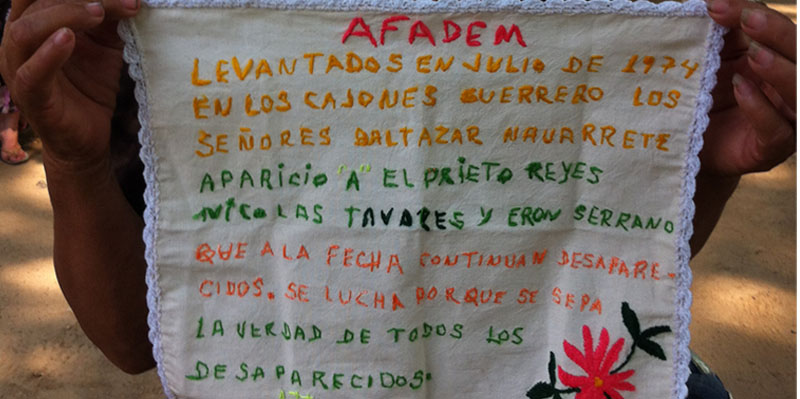 AFADEM
LEVANTADOS EN JULIO DE 1974
EN LOS CAJONES GUERRERO LOS
SEÑORES BALTAZAR NAVARRETE
APARICIO "A" EL PRIETO REYES
NICOLAS TAVARES Y ERON SERRANO
QUE A LA FECHA CONTINUAN DESAPARE-
CIDOS. SE LUCHA PORQUE SE SEPA
LA VERDAD DE TODOS LOS
DESAPARECIDOS.